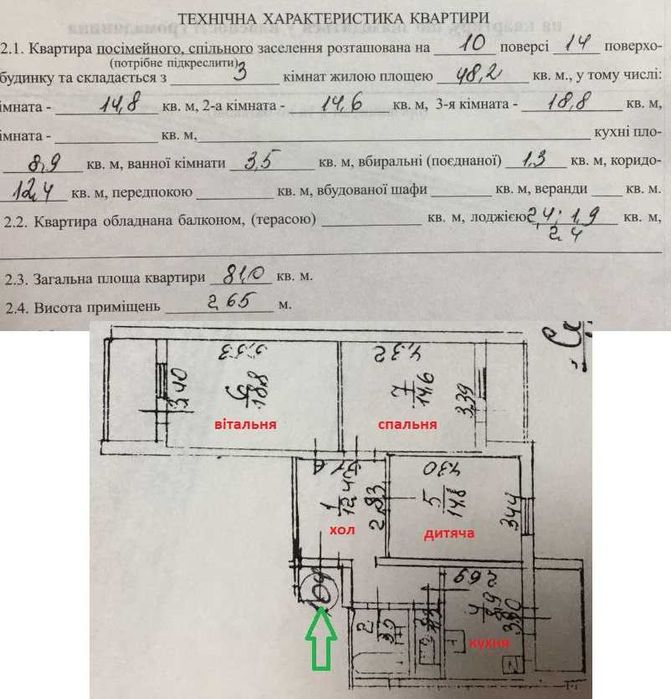 ТЕХНІЧНА ХАРАКТЕРИСТИКА КВАРТИРИ
2.1. Квартира посімейного, спільного заселення розташована на 10 поверсі 14 поверхо-
(потрібне підкреслити)
будинку та складається з 3 кімнат жилою площею 48,2 кв. м., у тому числі:
імната - 14,8 кв. м, 2-а кімната - 14,6 кв. м, 3-я кімната - 18,8 кв. м,
імната - кв. м, кухні пло-
8,9 кв. м, ванної кімнати 3,5 кв. м, вбиральні (поєднаної) 1,3 кв. м, коридо-
12,4 кв. м, передпокою кв. м, вбудованої шафи кв. м, веранди кв. м.
2.2. Квартира обладнана балконом, (терасою) кв. м, лоджією 2,4; 1,9 кв. м,
2,4
2.3. Загальна площа квартири 81,0 кв. м.
2.4. Висота приміщень 2,65 м.
5,53 4,32
3,40 6 18,8 7 14,6 3,39
вітальня спальня
4,30
1 12,4 2,83 5 14,8 3,44
хол дитяча
2,69
109 4 8,9 3,30
2
кухня